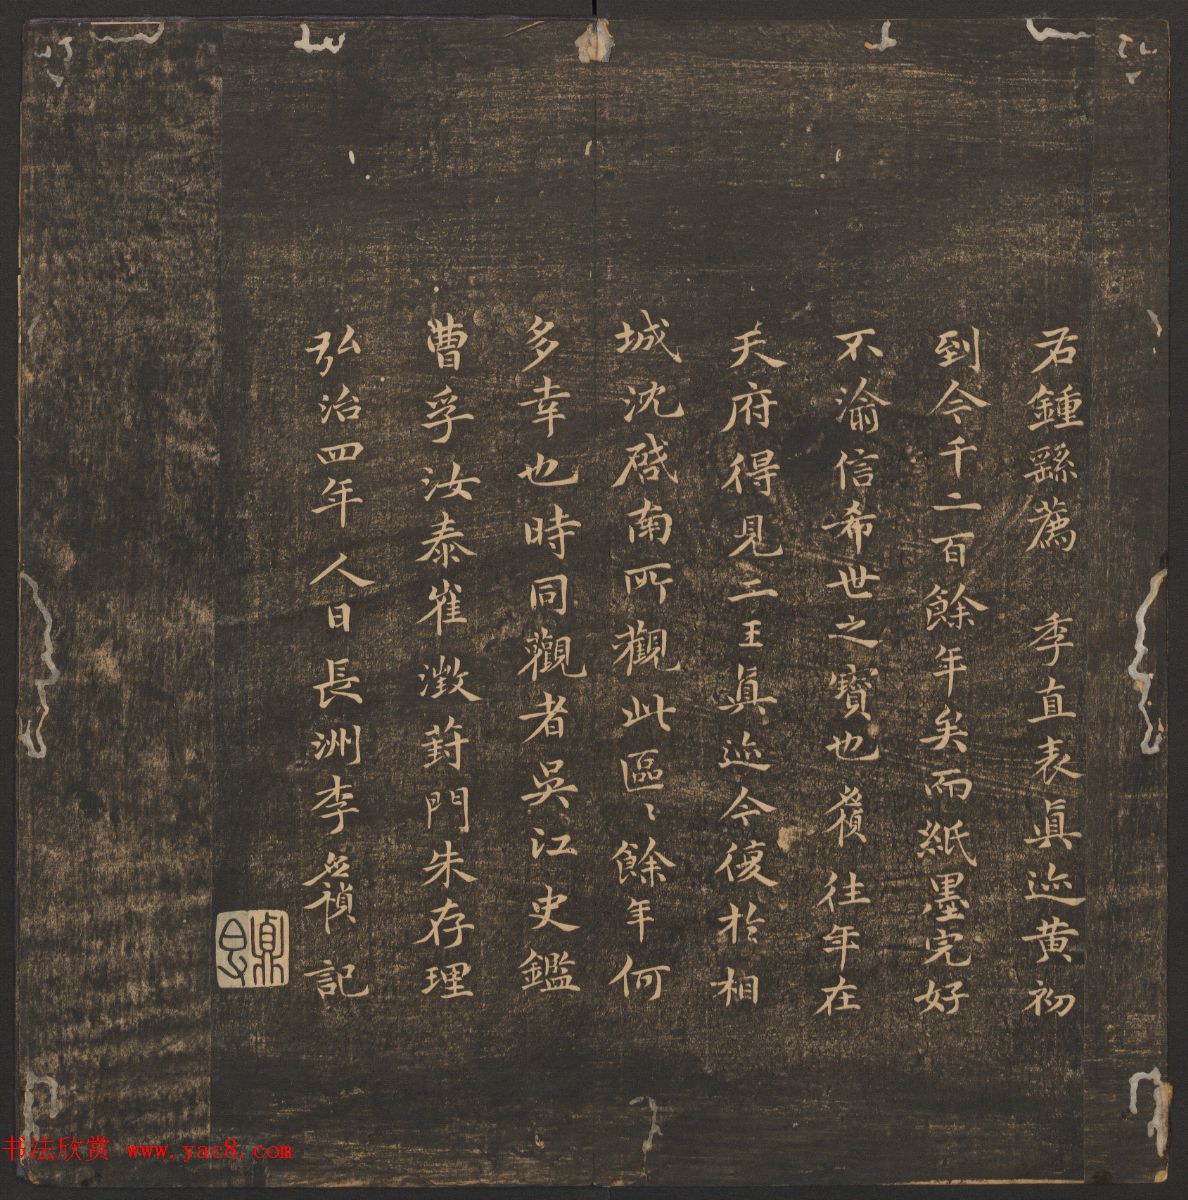 右鍾繇薦季直表真迹黄初
到今千二百餘年矣而紙墨完好
不渝信希世之寶也應禎往年在
天府得見二王真迹今復於相
城沈啓南所觀此區〻餘年何
多幸也時同觀者吳江史鑑
曹孚汝泰崔澂葑門朱存理
弘治四年人日長洲李應禎記
书法欣赏 www.yac8.com